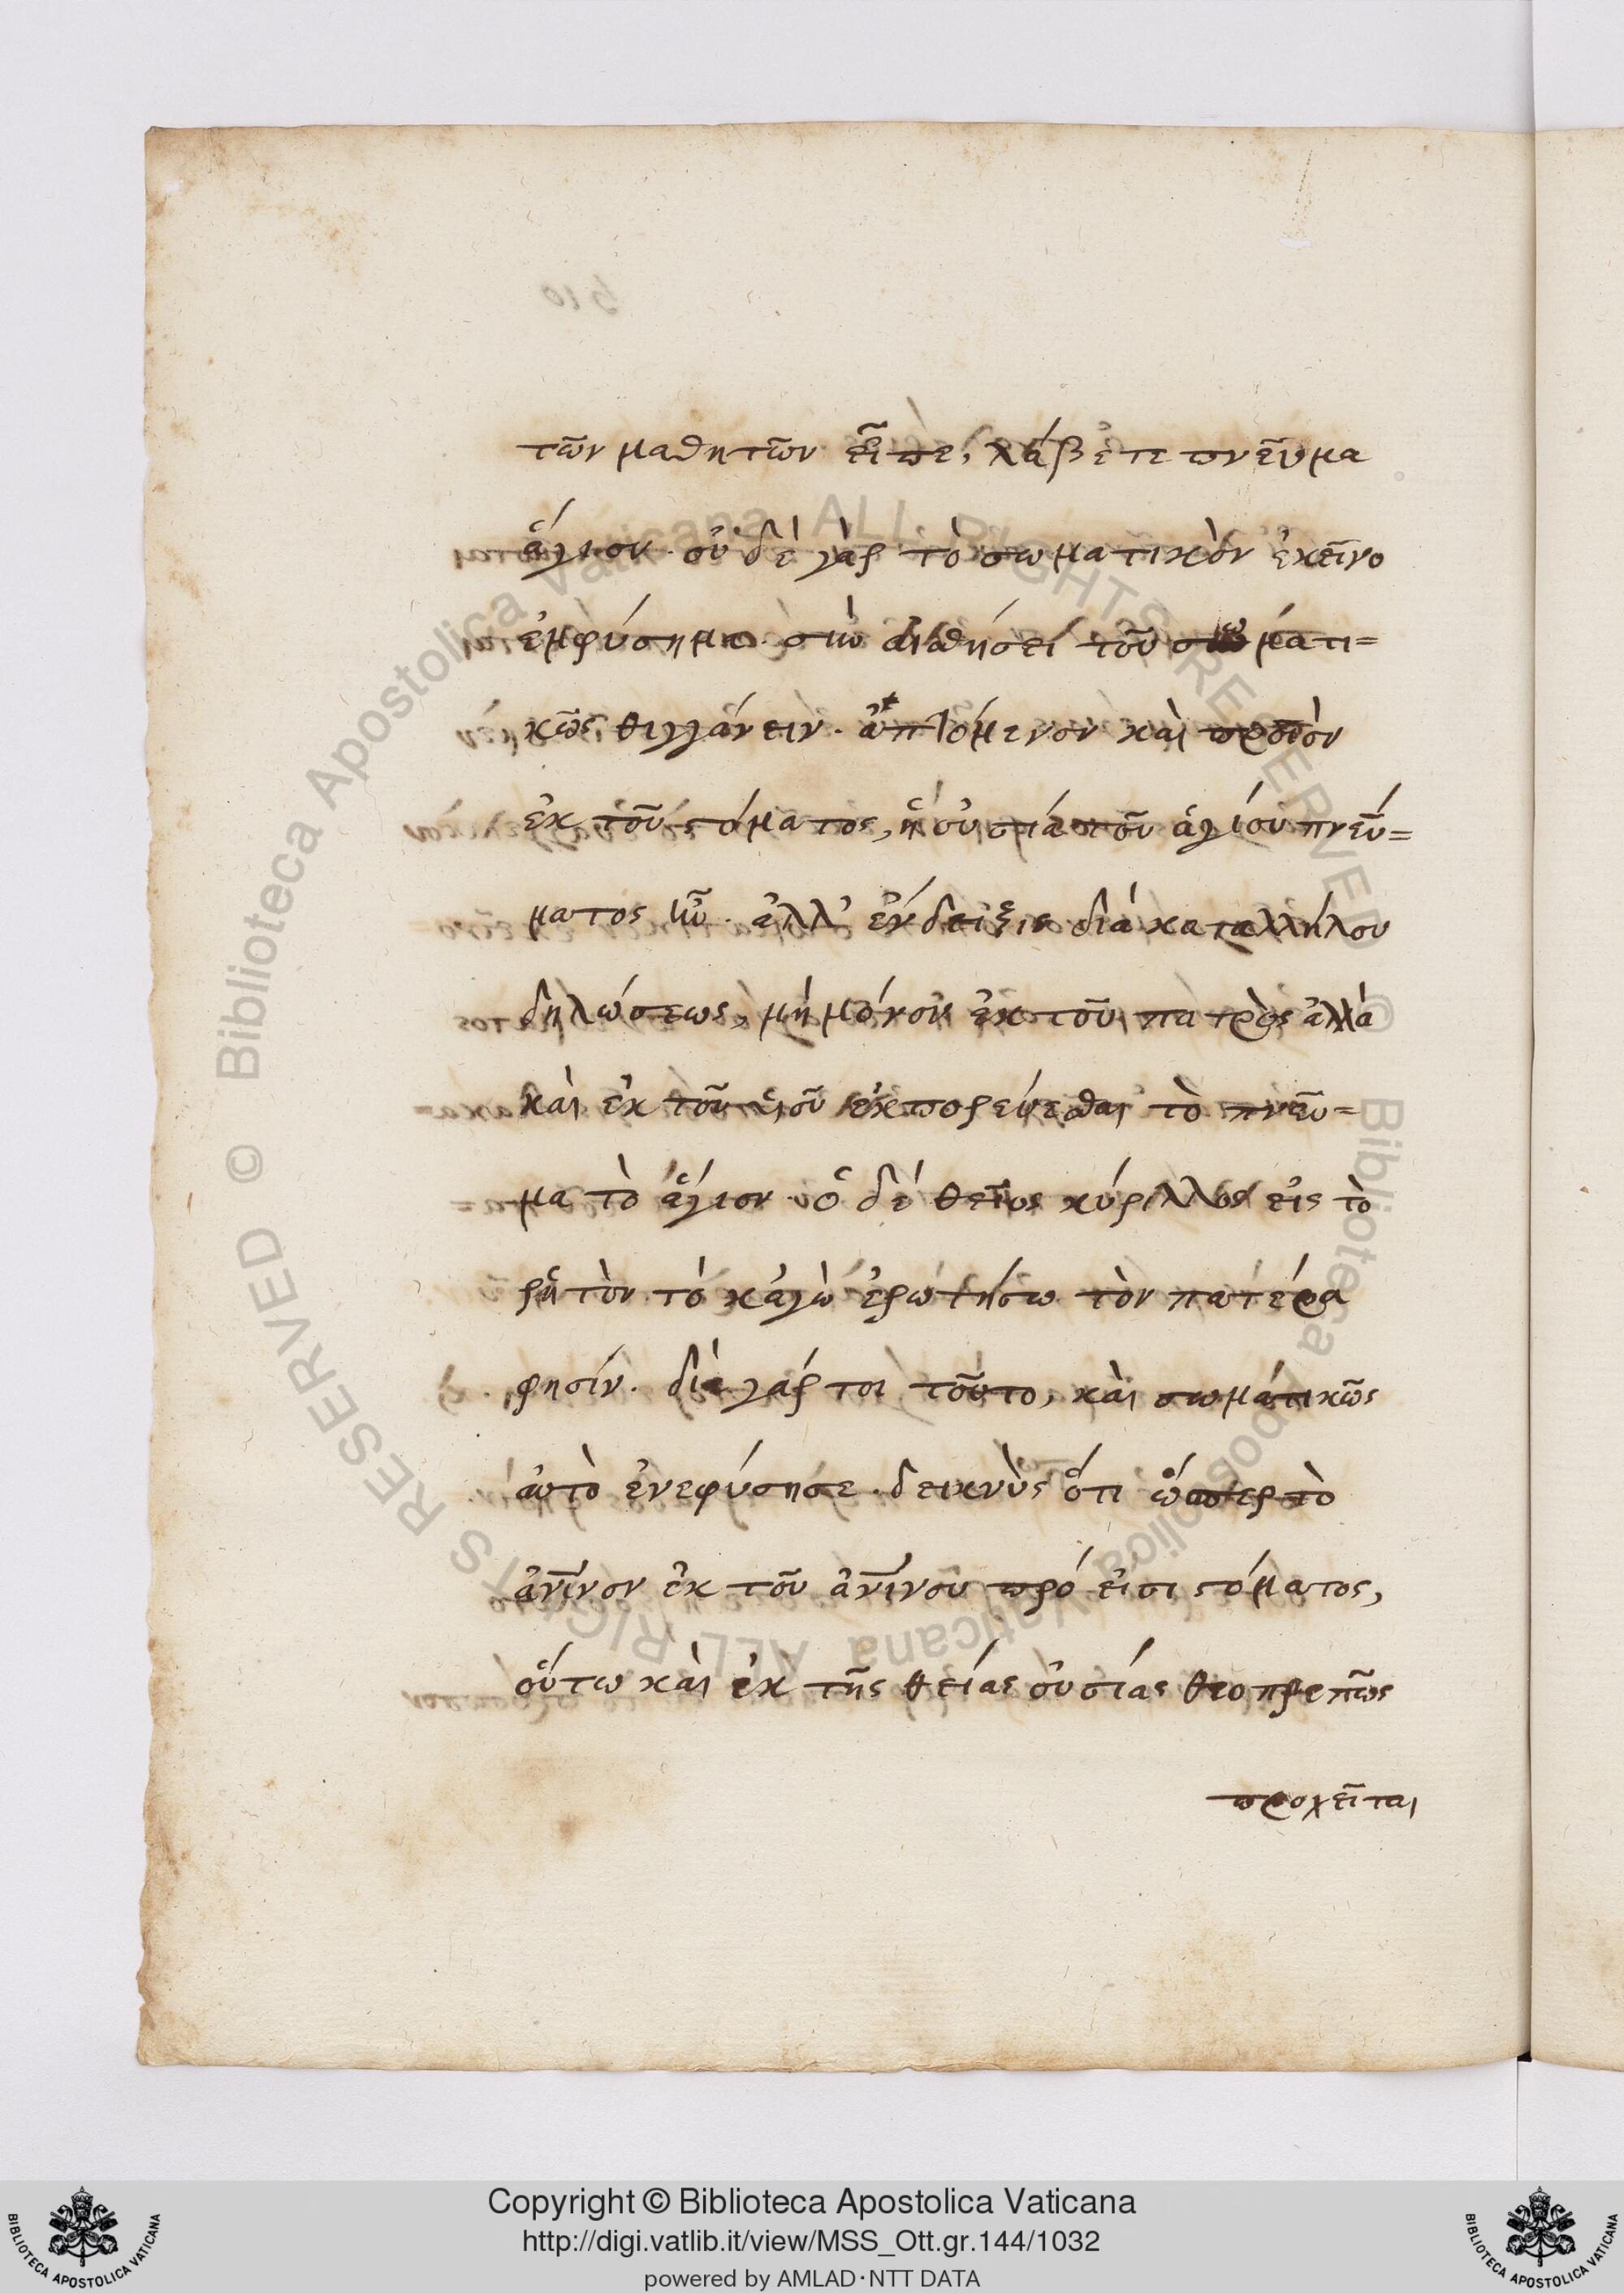 τῶν μαθητῶν εἶπε, λάβετε πνεῦμα
ἅγιον. οὐδὲ γὰρ τὸ σωματικὸν ἐκεῖνο
ἐμφύσημα. σὺν αἰσθήσει τοῦ σωματι=
κῶς θιγγάνειν. ἁπτόμενον καὶ προϊὸν
ἐκ τοῦ στόματος, ἡ οὐσία τοῦ ἁγίου πνεύ=
ματος ἦν. ἀλλ' ἔνδειξιν διὰ καταλλήλου
δηλώσεως, μὴ μόνον ἐκ τοῦ πατρὸς ἀλλὰ
καὶ ἐκ τοῦ υἱοῦ ἐκπορεύεσθαι τὸ πνεῦ=
μα τὸ ἅγιον. ὁ δὲ θεῖος κύριλλος εἰς τὸ
ῥητὸν τὸ κἀγὼ ἐρωτήσω τὸν πατέρα
φησίν. διὰ γάρ τοι τοῦτο, καὶ σωματικῶς
αὐτὸ ἐνεφύσησε. δεικνὺς ὅτι ὥσπερ τὸ
ἀνῖνον ἐκ τοῦ ἀνίνου πρόεισι στόματος,
οὕτω καὶ ἐκ τῆς θείας οὐσίας θεοπρεπῶς
προχεῖται
Copyright © Biblioteca Apostolica Vaticana
http://digi.vatlib.it/view/MSS_Ott.gr.144/1032
powered by AMLAD·NTT DATA